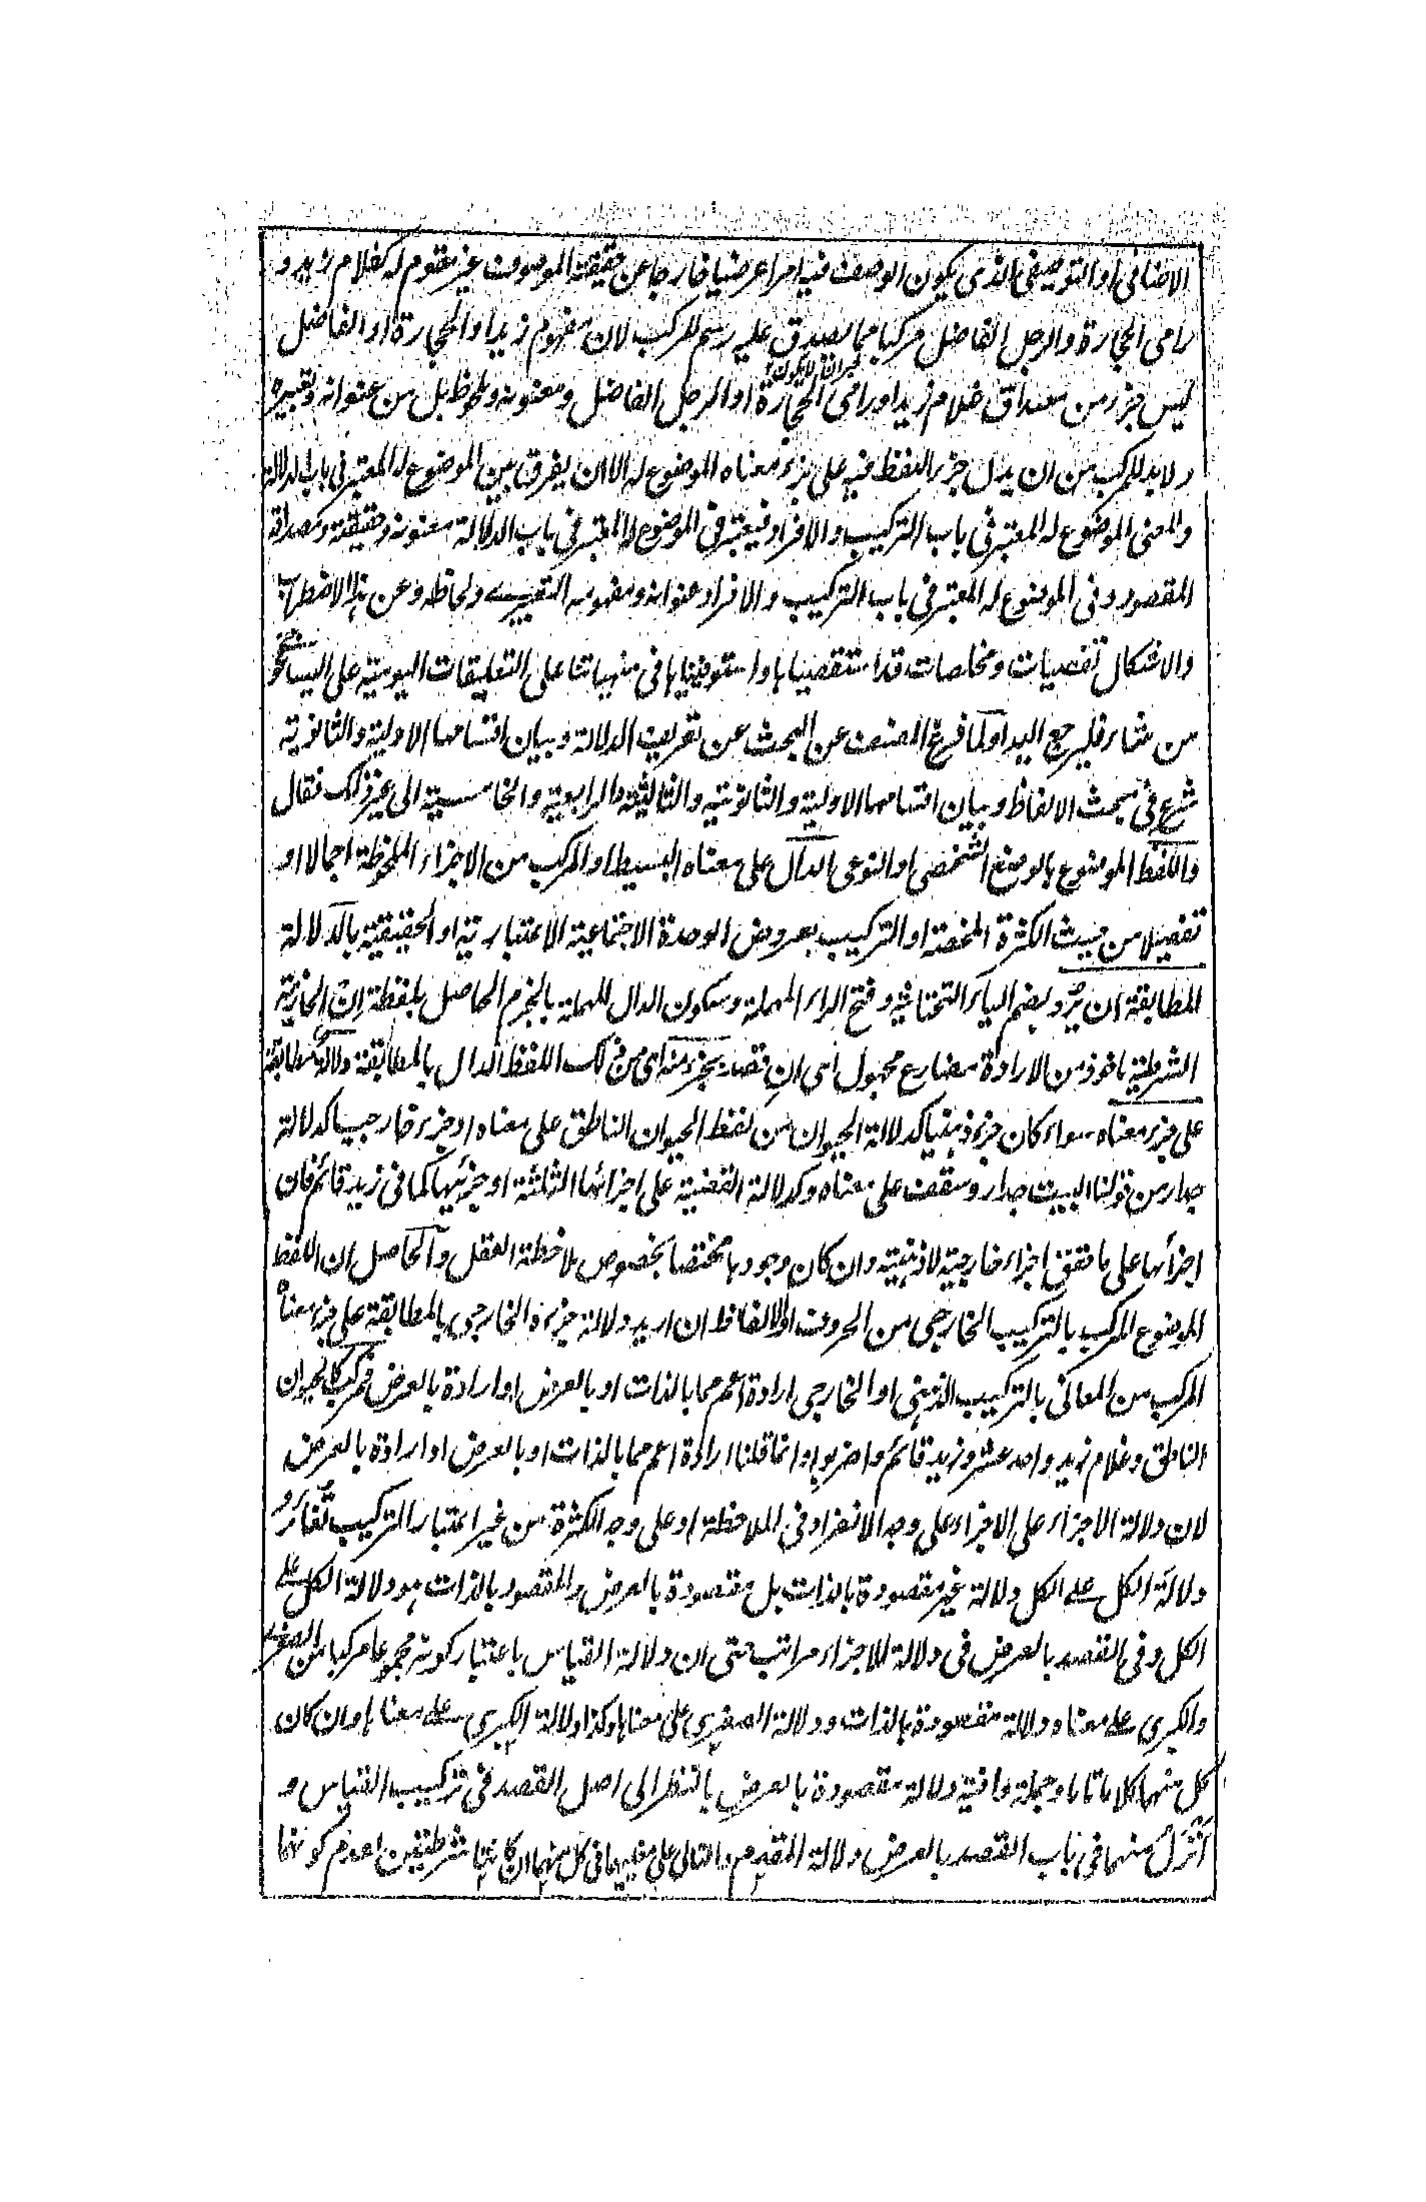 الاضافی او التوصیفی الذی یکون الوصف فیه امرا عرضیا خارجا عن حقیقة الموصوف غیر مقوم له کغلام زید و
رامی الحجارة والرجل الفاضل مرکبا مما یصدق علیه رسم المرکب لان مفهوم زید او الحجارة او الفاضل
لیس جزء من مصداق غلام زید او رامی الحجارة او الرجل الفاضل ومعنونه وملحوظ بل من عنوانه وتعبیره
ولا بد للمرکب من ان یدل جزء اللفظ فیه علی جزء معناه الموضوع له الا ان یفرق بین الموضوع له المعتبر فی باب الدلالة
والمعنی الموضوع له المعتبر فی باب الترکیب والافراد فیعتبر فی الموضوع له المعتبر فی باب الدلالة معنونه وحقیقته ومصداقه
المقصود وفی الموضوع له المعتبر فی باب الترکیب والافراد عنوانه ومفهومه التعبیری ولحاظه وعن هذا الاضطراب
والاشکال تفصیات ومخلصات قد استقصیناها واستوفیناها فی منهیاتنا علی التعلیقات الیومیة علی
من شاء فلیرجع الیها ولما فرغ المصنف عن البحث عن تعریف الدلالة وبیان اقسامها الاولیة والثانویة
شرع فی مبحث الالفاظ وبیان اقسامها الاولیة والثانویة والثالثیة والرابعیة والخامسیة الی غیر ذلک فقال
واللفظ الموضوع بالوضع الشخصی او النوعی الدال علی معناه البسیط او المرکب من الاجزاء الملحوظة اجمالا او
تفصیلا من حیث الکثرة المحضة او الترکیب بعروض الوحدة الاجتماعیة الاعتباریة او الحقیقیة بالدلالة
المطابقة ان یُرَد بضم الیاء التحتانیة وفتح الراء المهملة وسکون الدال المهملة بالجزم الحاصل بلفظة اِن الجازمة
الشرطیة ماخوذ من الارادة مضارع مجهول ای ان قصد بجزء منه ای من ذلک اللفظ الدال بالمطابقة دلالة مطابقة
علی جزء معناه سواء کان جزء ذهنیا کدلالة الحیوان من لفظ الحیوان الناطق علی معناه او جزء خارجیا کدلالة
جدار من قولنا البیت جدار وسقف علی معناه وکدلالة القضیة علی اجزائها الثلثة او جزئیها کما فی زید قائم فان
اجزائها علی ما حقق اجزاء خارجیة لا ذهنیة وان کان وجودها مختصا بخصوص ملاحظة العقل والحاصل ان اللفظ
الموضوع المرکب بالترکیب الخارجی من الحروف او الالفاظ ان ارید دلالة جزءه الخارجی بالمطابقة علی جزء معناه
المرکب من المعانی بالترکیب الذهنی او الخارجی ارادة اعم مما بالذات او بالعرض او ارادة بالعرض فمرکب کالحیوان
الناطق وغلام زید واحد عشر وزید قائم واضربوا وانما قلنا ارادة اعم مما بالذات او بالعرض او ارادة بالعرض
لان دلالة الاجزاء علی الاجزاء علی وجه الانفراد فی الملاحظة او علی وجه الکثرة من غیر اعتبار الترکیب تغائر و
دلالة الکل علی الکل دلالة غیر مقصودة بالذات بل مقصودة بالعرض والمقصود بالذات هو دلالة الکل علی
الکل وفی القصد بالعرض فی دلالة للاجزاء مراتب حتی ان دلالة القیاس باعتبار کونه مجموعا مرکبا من الصغری
والکبری علی معناه دلالة مقصودة بالذات ودلالة الصغری علی معناها وکذا دلالة الکبری علی معناها وان کان
کل منهما کلاما تاما وجملة وافیة دلالة مقصودة بالعرض بالنظر الی اصل القصد فی ترکیب القیاس و
اَنزَل منهما فی باب القصد بالعرض دلالة المقدم والتالی علی معنییهما فی کل منهما ان کانتا شرطیتین لعدم کونهما